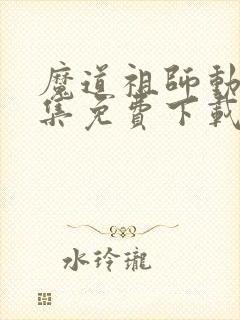 魔道祖師動
集免費下載
水玲瓏